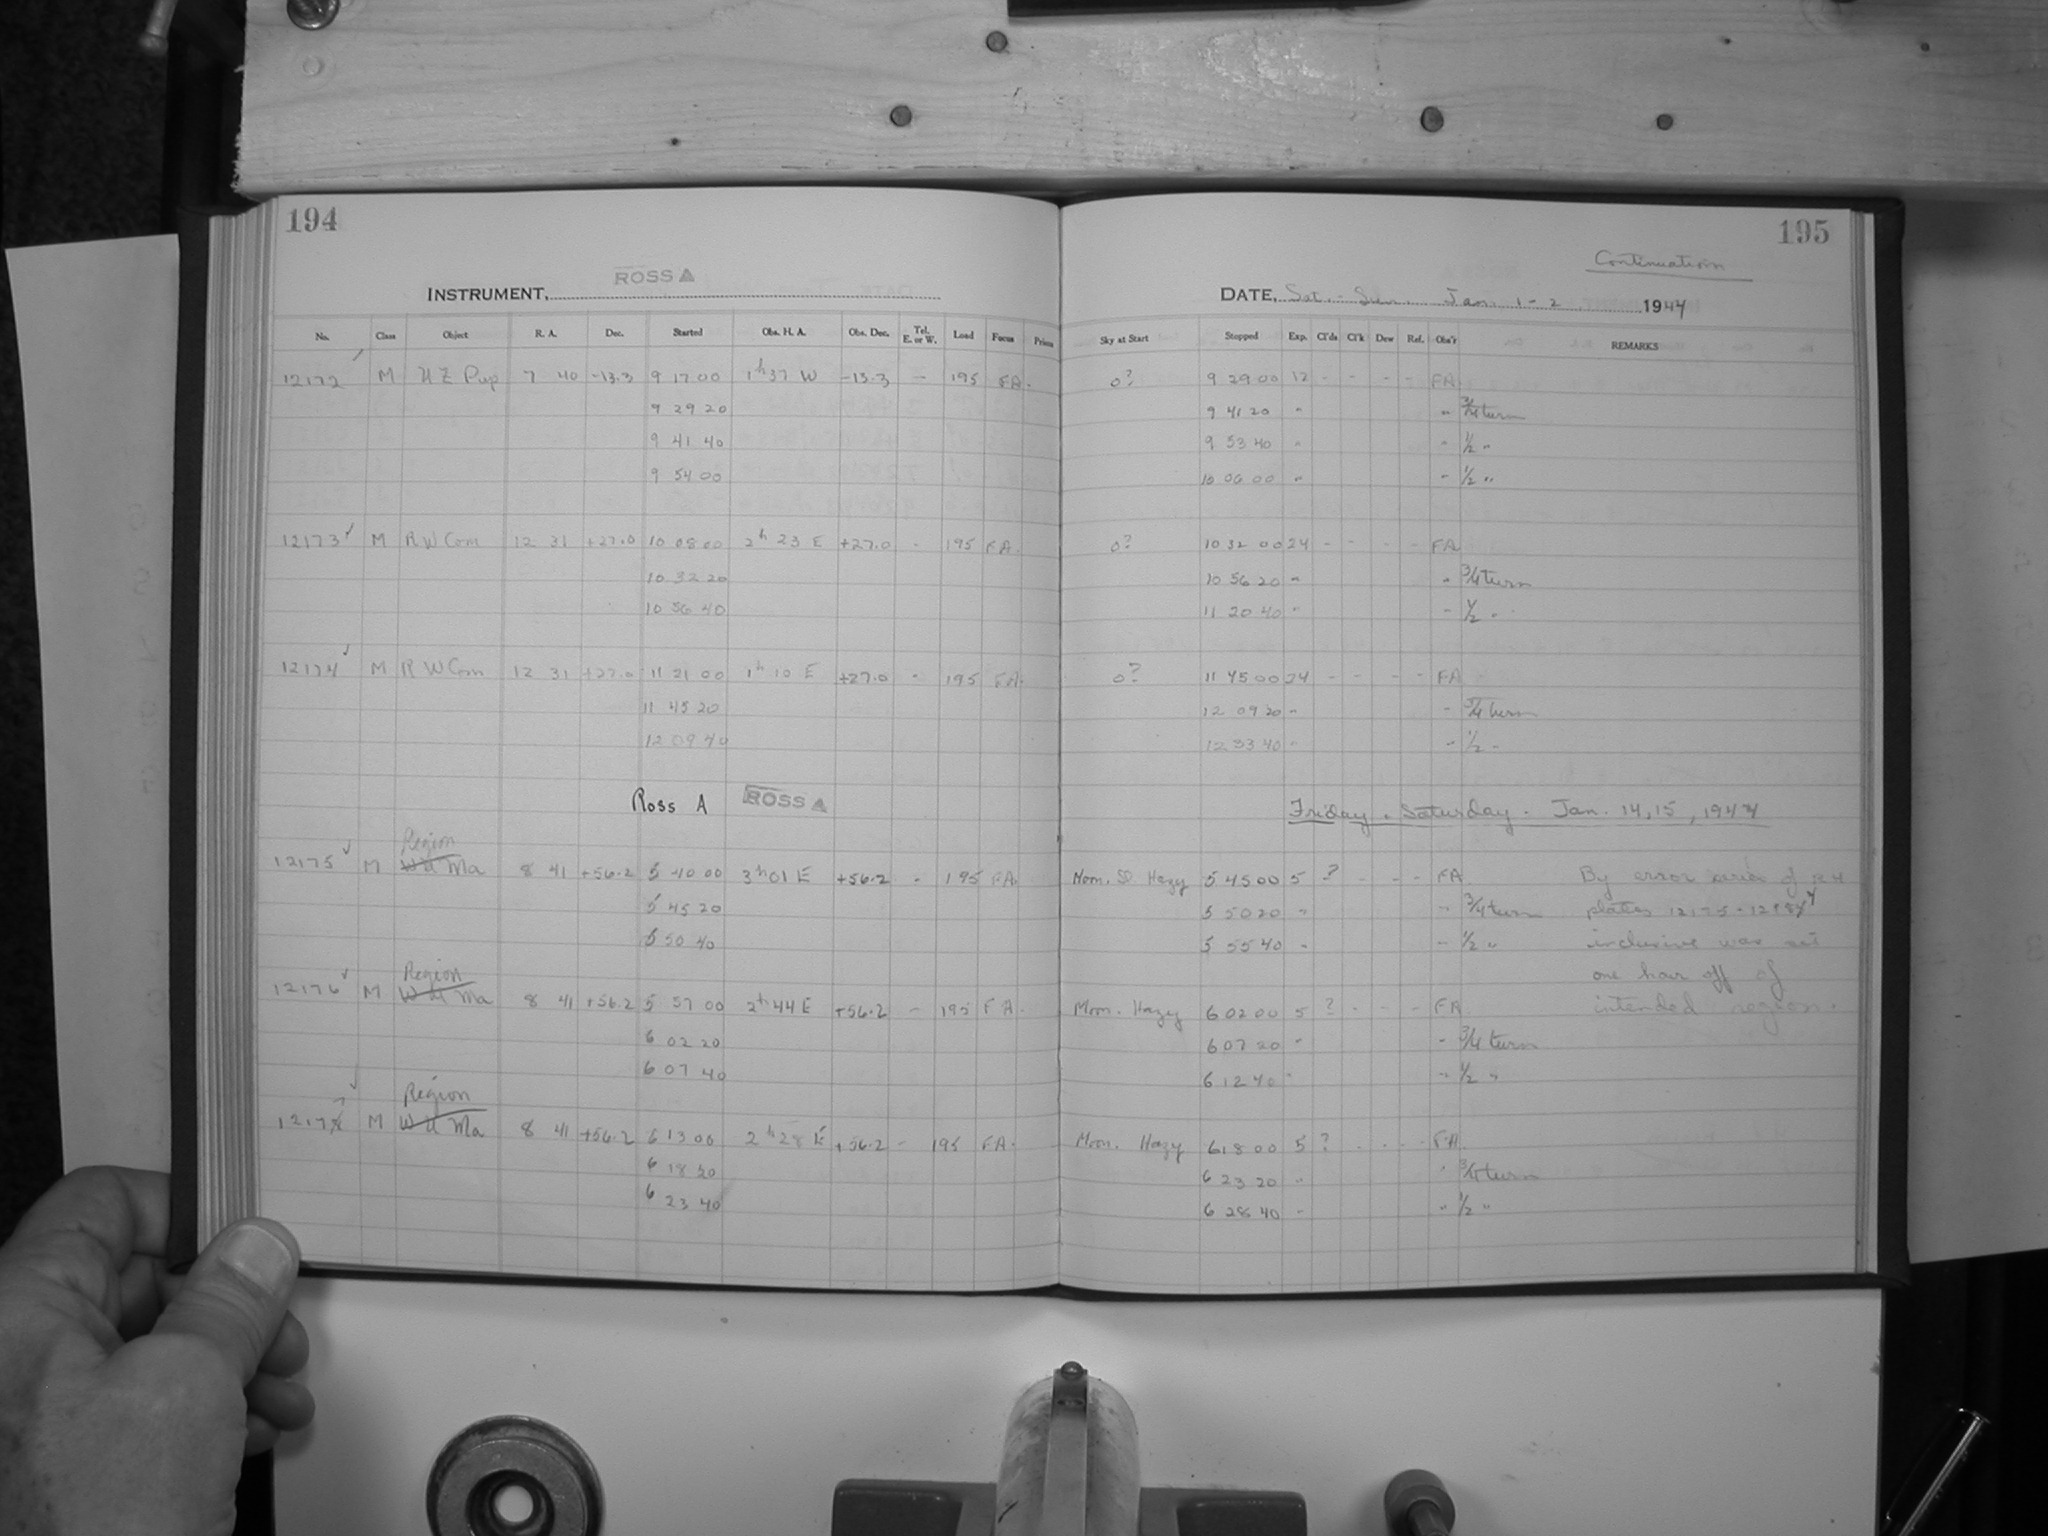 194
195
Continuation
ROSS A
INSTRUMENT,
DATE, Sat. - Sun. Jan. 1 - 2 1944
No. Class Object R. A. Dec. Started Obs. H. A. Obs. Dec. Tel. E. or W. Load Focus Prism Sky at Start Stopped Exp. Cl'ds Cl'k Dew Ref. Obs'r REMARKS
12172 M UZ Pup 7 40 -13.3 9 17 00 1h 37 W -13.3 - 195 FA. 0? 9 29 00 12 - - - - FA
9 29 20 9 41 20 " " 3/4 turn
9 41 40 9 53 40 " " 1/2 "
9 54 00 10 06 00 " " 1/2 "
12173 M RW Com 12 31 +27.0 10 08 00 2h 23 E +27.0 - 195 FA. 0? 10 32 00 24 - - - - FA
10 32 20 10 56 20 " " 3/4 turn
10 56 40 11 20 40 " " 1/2 "
12174 M RW Com 12 31 +27.0 11 21 00 1h 10 E +27.0 - 195 FA. 0? 11 45 00 24 - - - - FA
11 45 20 12 09 20 " " 3/4 turn
12 09 40 12 33 40 " " 1/2 "
Ross A ROSS A Friday - Saturday - Jan. 14, 15, 1944
Region
12175 M W U Ma 8 41 +56.2 5 40 00 3h 01 E +56.2 - 195 FA. Hazy 5 45 00 5 ? - - - FA By error series of
5 45 20 5 50 20 " " 3/4 turn plates 12175 -
5 50 40 5 55 40 " " 1/2 " inclusive was set
Region one hour off of
12176 M W U Ma 8 41 +56.2 5 57 00 2h 44 E +56.2 - 195 FA. Moon. Hazy 6 02 00 5 ? - - - FA intended region.
6 02 20 6 07 20 " " 3/4 turn
6 07 40 6 12 40 " " 1/2 "
Region
12177 M W U Ma 8 41 +56.2 6 13 00 2h 28 E +56.2 - 195 FA. Moon. Hazy 6 18 00 5 ? - - - FA
6 18 20 6 23 20 " " 3/4 turn
6 23 40 6 28 40 " " 1/2 "